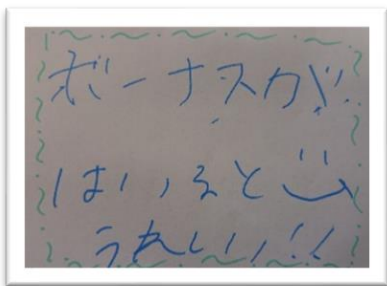 ボーナスが
はいると
うれしい!!